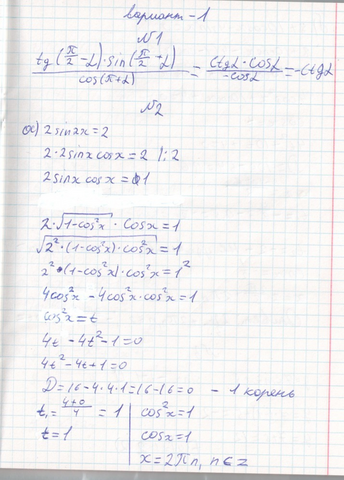 вариант-1
N1
tg(π/2 - α)·sin(π/2 - α) / cos(π+α) = ctgα·cosα / -cosα = -ctgα
N2
а) 2sin2x=2
2·2sinxcosx=2 /:2
2sinxcosx=1
2·√(1-cos²x)·cosx=1
√(2²·(1-cos²x)·cos²x)=1
2²·(1-cos²x)·cos²x=1²
4cos²x-4cos²x·cos²x=1
cos²x=t
4t-4t²-1=0
4t²-4t+1=0
D=16-4·4·1=16-16=0 - 1 корень
t₁=(4+0)/4=1
t=1
cos²x=1
cosx=1
x=2πn, n∈z